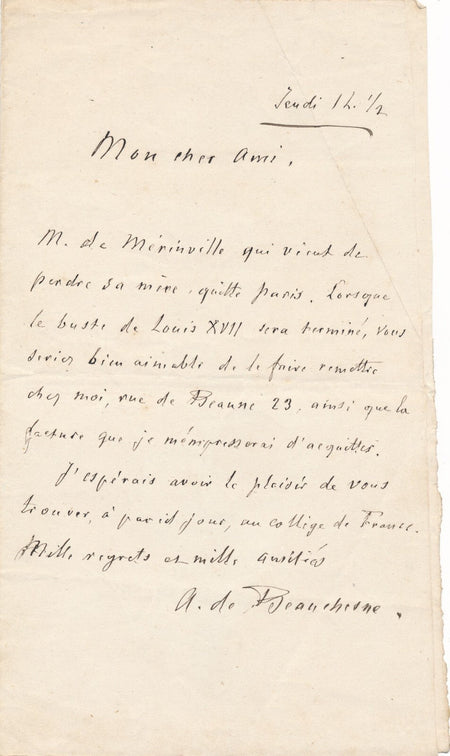 Jeudi 1 h. 1/2
Mon cher Ami,
M. de Mérinville qui vient de
perdre sa mère, quitte Paris. Lorsque
le buste de Louis XVII sera terminé, vous
seriez bien aimable de le faire remettre
chez moi, rue de Beaune 23, ainsi que la
facture que je m'empresserai d'acquitter.
J'espérais avoir le plaisir de vous
trouver, à pareil jour, au collège de France.
Mille regrets et mille amitiés
A. de Beauchesne.